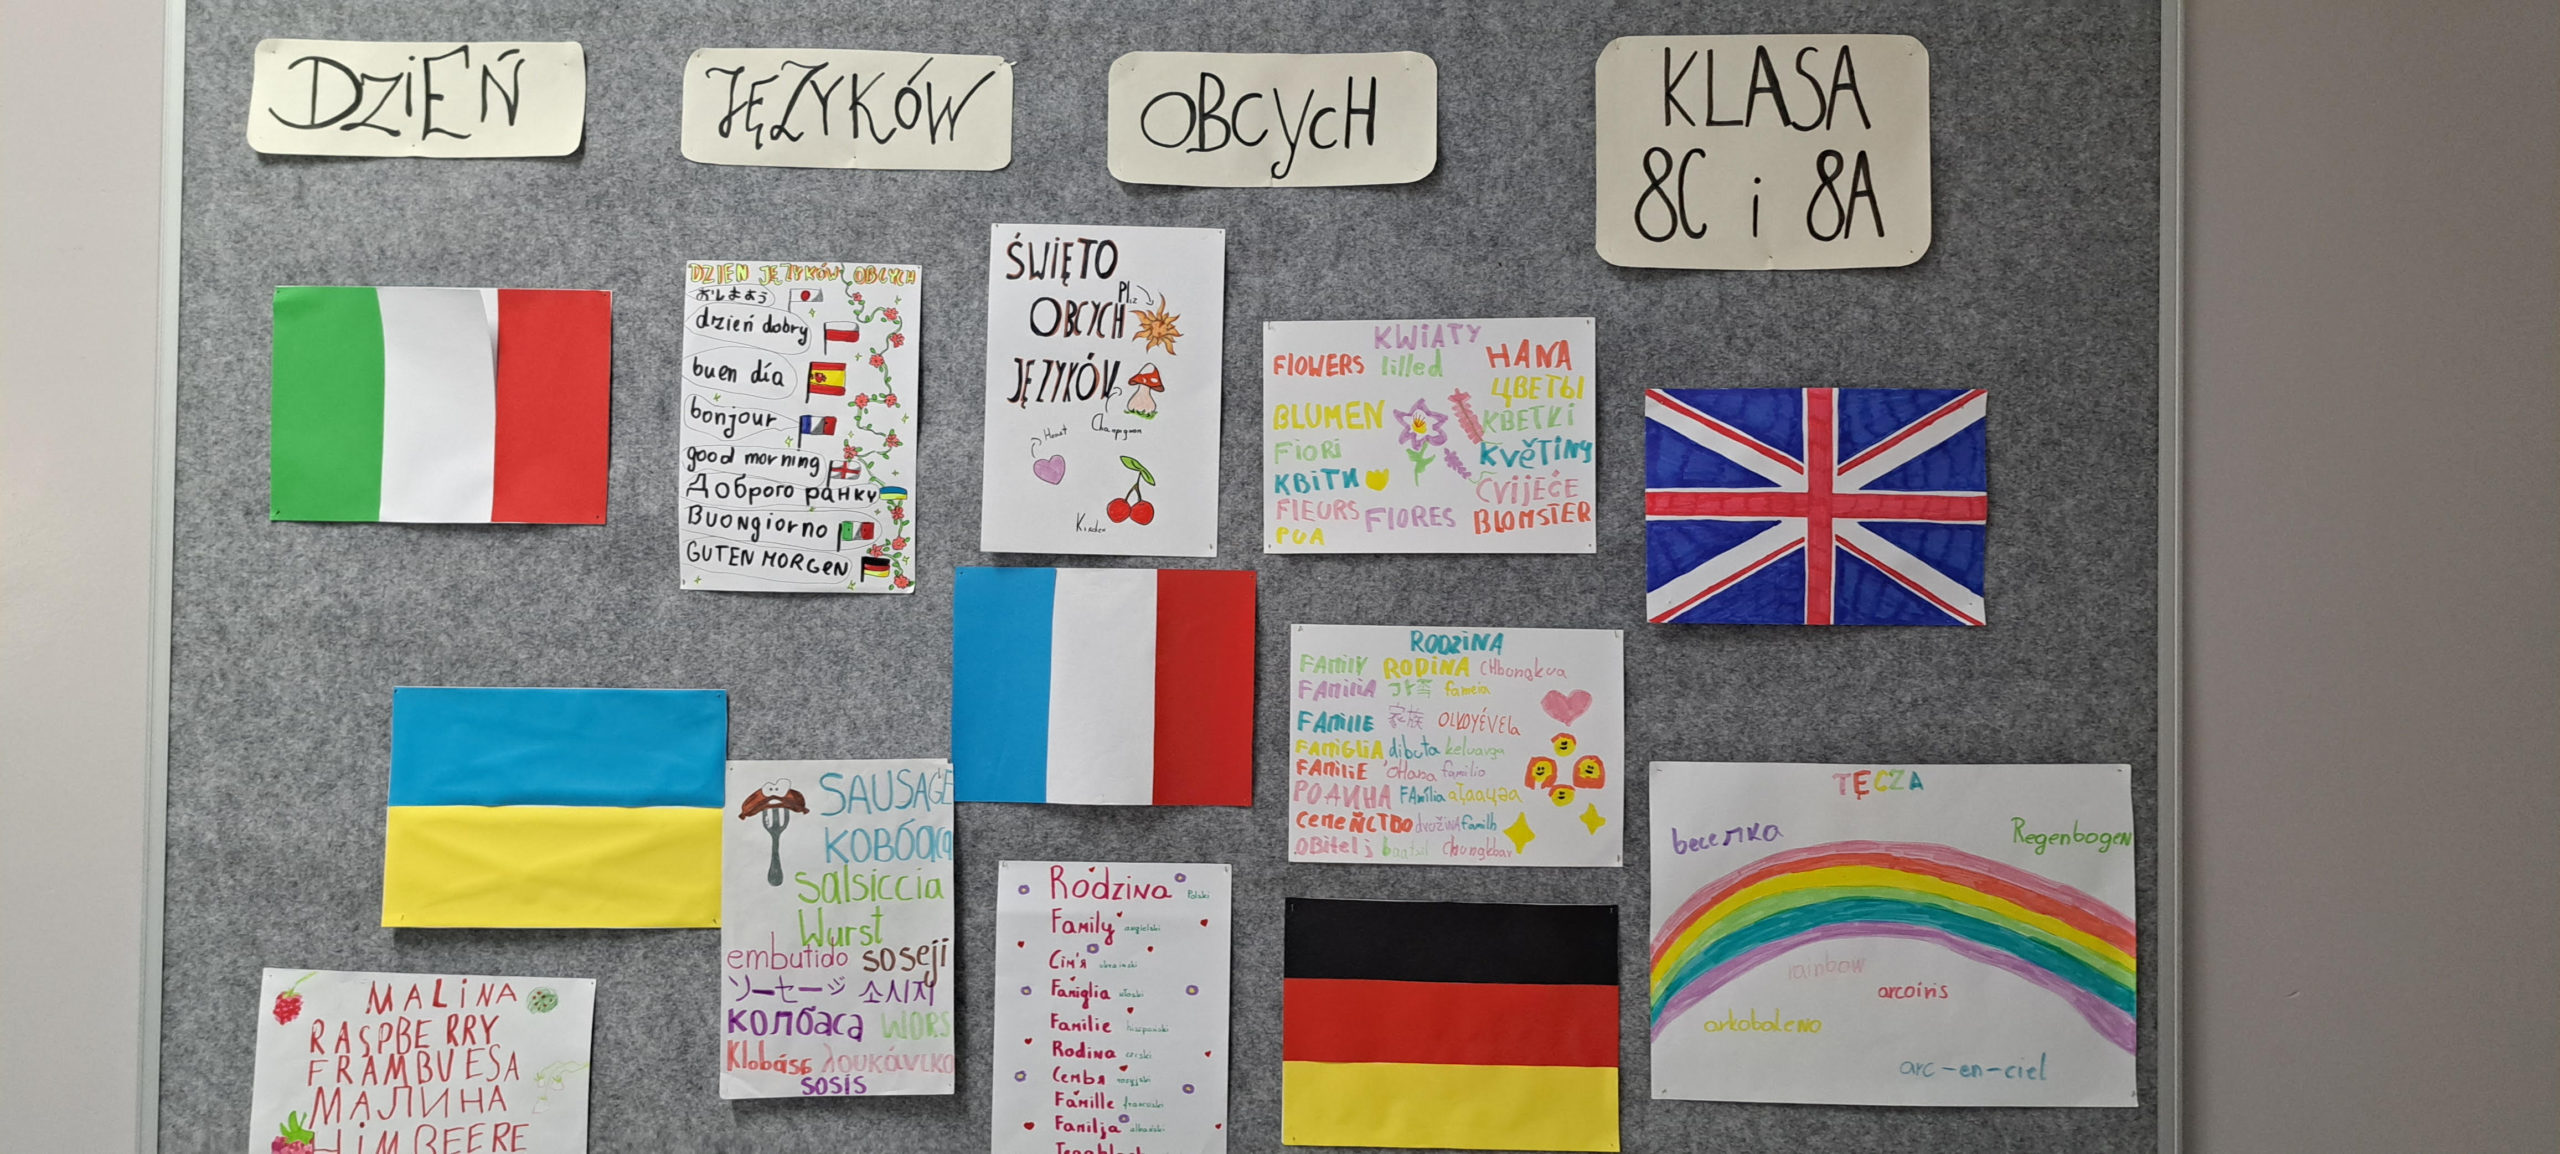 DZIEŃ JĘZYKÓW OBCYCH
KLASA
8C i 8A
DZIEŃ JĘZYKÓW OBCYCH
dzień dobry
buen día
bonjour
good morning
Доброго ранку
Buongiorno
GUTEN MORGEN
ŚWIĘTO
OBCYCH
JĘZYKÓW
Pilz
Champignon
KWIATY
FLOWERS lilled HANA
ЦВЕТЫ
BLUMEN КВЕТКІ
FIORI KVĚTINY
КВІТИ CVIJEĆE
FLEURS FLORES BLOMSTER
PUA
RODZINA
FAMILY RODINA
FAMILIA
FAMILLE 家族
FAMIGLIA
FAMILIE 'OHANA familio
РОДИНА FAmília
СЕМЕЙСТВО družina
OBITELJ
SAUSAGE
salsiccia
Wurst
embutido soseji
ソーセージ 소시지
колбаса WORS
klobása
sosis
Rodzina Polski
Family angielski
Сім'я ukraiński
Famiglia włoski
Familie hiszpański
Rodina czeski
Семья rosyjski
Famille francuski
Familja albański
TĘCZA
веселка Regenbogen
rainbow
arcoiris
arkobaleno
arc-en-ciel
MALINA
RASPBERRY
FRAMBUESA
МАЛИНА
HIMBEERE